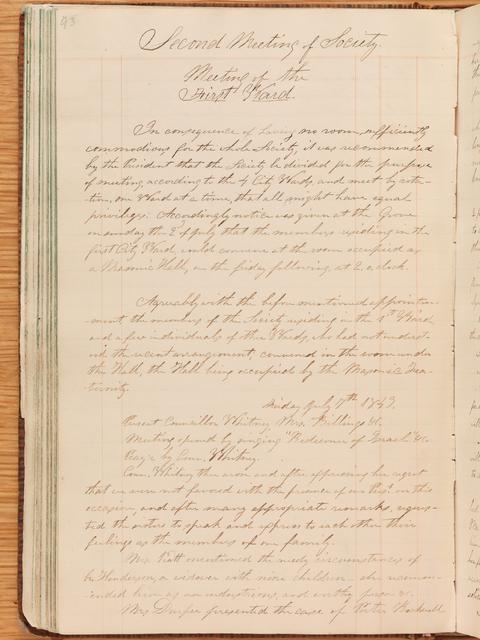 93
Second Meeting of Society.
Meeting of the
First Ward.
In consequence of having no room, sufficiently
commodious for the whole Society, it was recommended
by the President that the Society be divided for the purpose
of meeting, according to the 4 City Wards, and meet by rota-
tion, one Ward at a time, that all might have equal
privileges. Accordingly notice was given at the Grove
on sunday the 2d of July that the members residing in the
first City Ward, would convene at the room occupied as
a Masonic Hall, on the friday following, at 2, o,clock.
Agreeably with the before mentioned appoint-
ment, the members of the Society residing in the 1st Ward
and a few individuals of other Wards, who had not underst-
ood the recent arrangement, convened in the room under
the Hall, the Hall being occupied by the Masonic Fra-
ternity.
Friday July 7th 1843.
Present Councillor Whitney, Mrs. Billings &c.
Meeting opened by singing "Redeemer of Israel" &c.
Pray'r by Coun. Whitney.
Coun. Whitney then arose and after expressing her regret
that we were not favored with the presence of our Prest. on this
occasion, and after many appropriate remarks, reques-
ted the sisters to speak and express to each other their
feelings as the members of one family.
Mrs. Pratt mentioned the needy circumstances of
br. Henderson, a widower with nine children - she recomm-
ended him as an industrious, and worthy person &c.
Mrs Durfee presented the case of Porter Rockwell